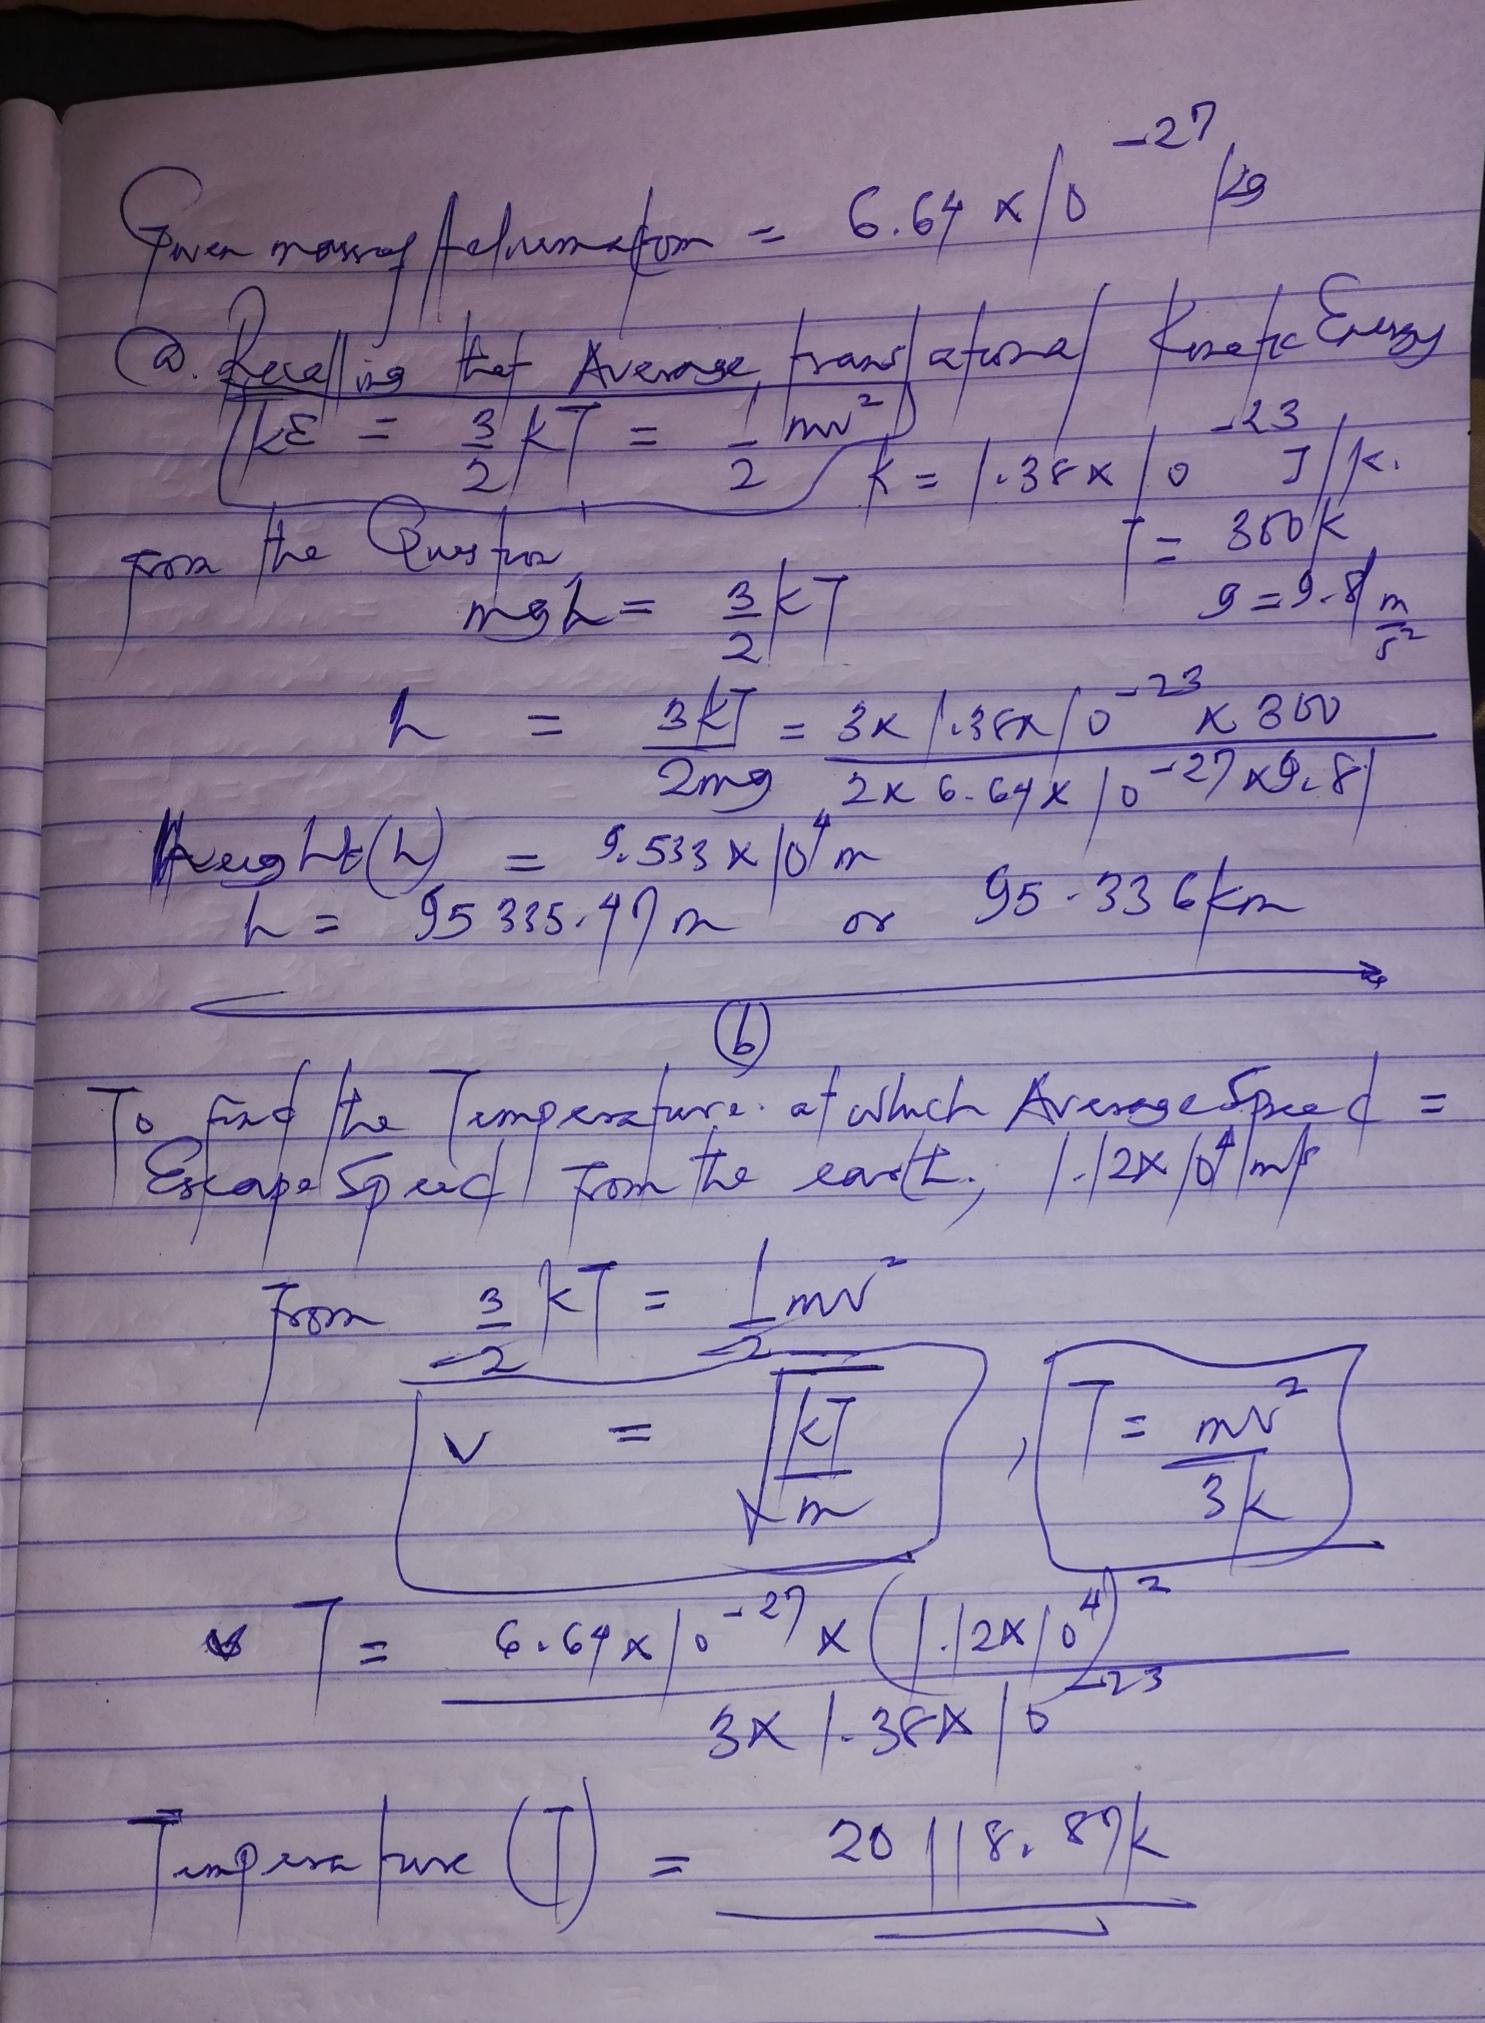 Given mass of Helium atom = 6.64 x 10^-27 kg
(a). Recalling that Average translational Kinetic Energy
KE = 3/2 kT = 1/2 mv^2
k = 1.38 x 10^-23 J/K.
From the Question
T = 300K
mgh = 3/2 kT
g = 9.81 m/s^2
h = 3kT/2mg = 3 x 1.38 x 10^-23 x 300 / 2 x 6.64 x 10^-27 x 9.81
Height (h) = 9.533 x 10^4 m
h = 95335.47m or 95.336km
(b)
To find the Temperature. at which Average Speed =
Escape Speed from the earth; 1.12 x 10^4 m/s
From 3/2 kT = 1/2 mv^2
v = √(kT/m) , T = mv^2/3k
T = 6.64 x 10^-27 x (1.12 x 10^4)^2 / 3 x 1.38 x 10^-23
Temperature (T) = 20118.87k